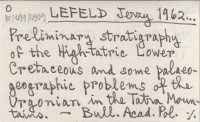 O
LEFELD Jerzy 1962...
Preliminary stratigraphy
of the High-tatric Lower
Cretaceous and some palaeo-
geographic problems of the
Urgonian in the Tatra Moun-
tains. — Bull. Acad. Pol. ./.